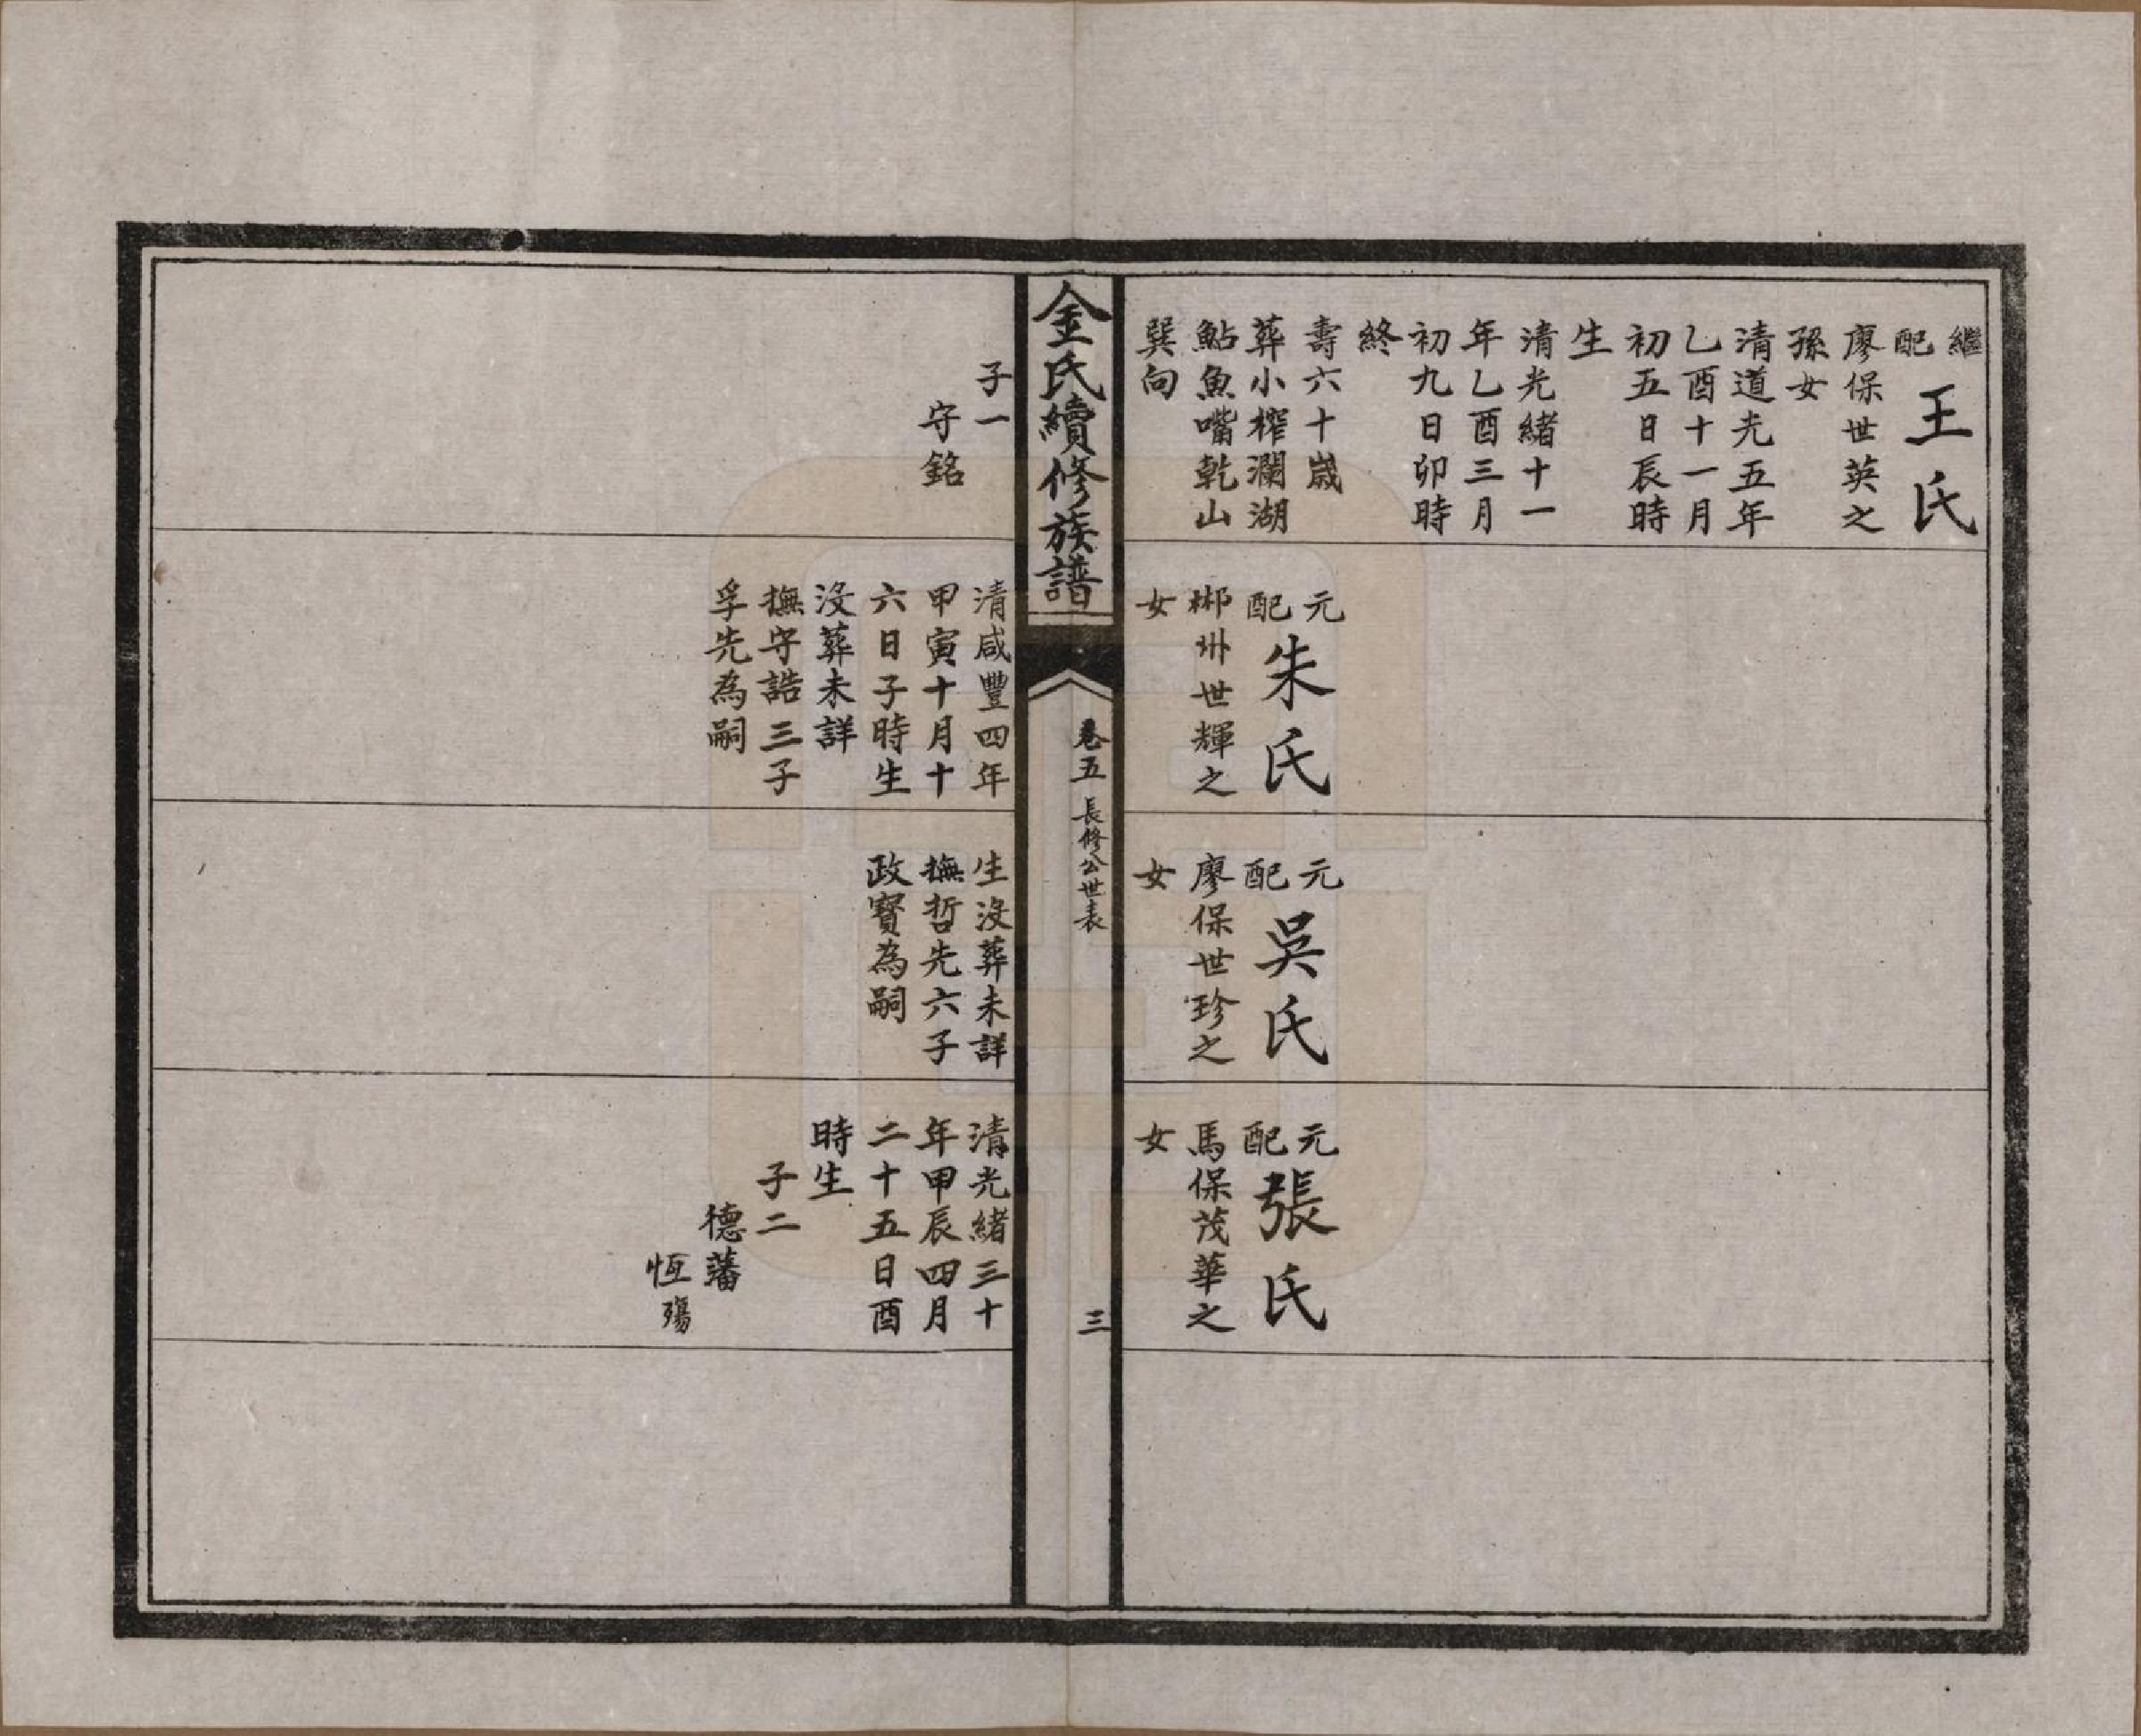 繼配王氏
廖保世英之
孫女
清道光五年
乙酉十一月
初五日辰時
生
清光緒十一
年乙酉三月
初九日卯時
終
壽六十歲
葬小榨瀾湖
鮎魚嘴乾山
巽向
元配朱氏
郴州世輝之
女
元配吳氏
廖保世珍之
女
元配張氏
馬保茂華之
女
金氏續修族譜
卷五 長修公世表
三
子一
守銘
清咸豐四年
甲寅十月十
六日子時生
沒葬未詳
撫守誥三子
孚先為嗣
生沒葬未詳
撫哲先六子
政寶為嗣
清光緒三十
年甲辰四月
二十五日酉
時生
子二
德藩
恆殤